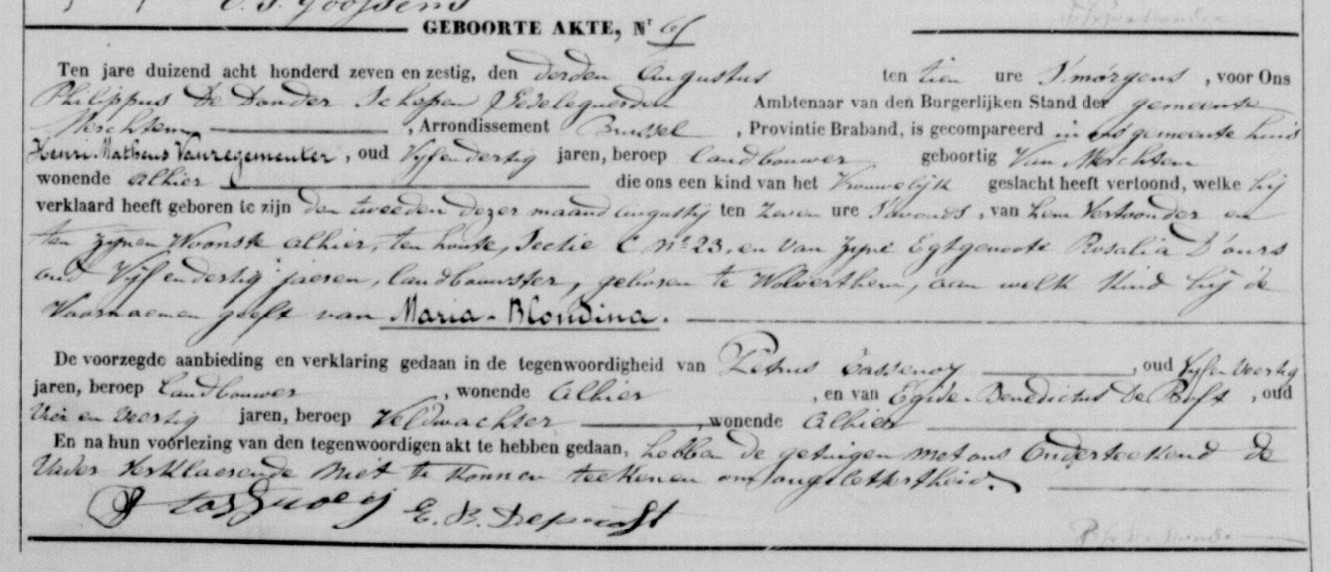 GEBOORTE AKTE, Nr
Ten jare duizend acht honderd zeven en zestig, den derden Augustus ten tien ure S'morgens , voor Ons
Philippus De Donder Schepen Gedelegeerden Ambtenaar van den Burgerlijken Stand der gemeente
Merchtem , Arrondissement Brussel , Provintie Braband, is gecompareerd in ons gemeente huis
Henri Matheus Vanregementer , oud Vyfendertig jaren, beroep Landbouwer geboortig Van Merchtem
wonende alhier die ons een kind van het Vrouwelijk geslacht heeft vertoond, welke hij
verklaard heeft geboren te zijn den tweeden dezer maand Augusty ten Zeven ure S'avonds , van hem Vertoonder en
ten zynen Woonste alhier, ten houte, Sectie C No 23. en van zyne Egtgenoote Rosalia D'ours
oud Vijf endertig jaeren, Landbouwster, geboren te Wolverthem, aan welk Kind hij de
Voornaemen geeft van Maria - Blondina.
De voorzegde aanbieding en verklaring gedaan in de tegenwoordigheid van Petrus , oud Vyfen Veertig
jaren, beroep Landbouwer , wonende Alhier , en van Egide Benedictus De , oud
Vier en Veertig jaren, beroep Veldwachter , wonende Alhier
En na hun voorlezing van den tegenwoordigen akt te hebben gedaan, hebben de getuigen met ons Onderteekend de
Vader Verklaerende Niet te Konnen teekenen om ongelettertheid.
E. B.